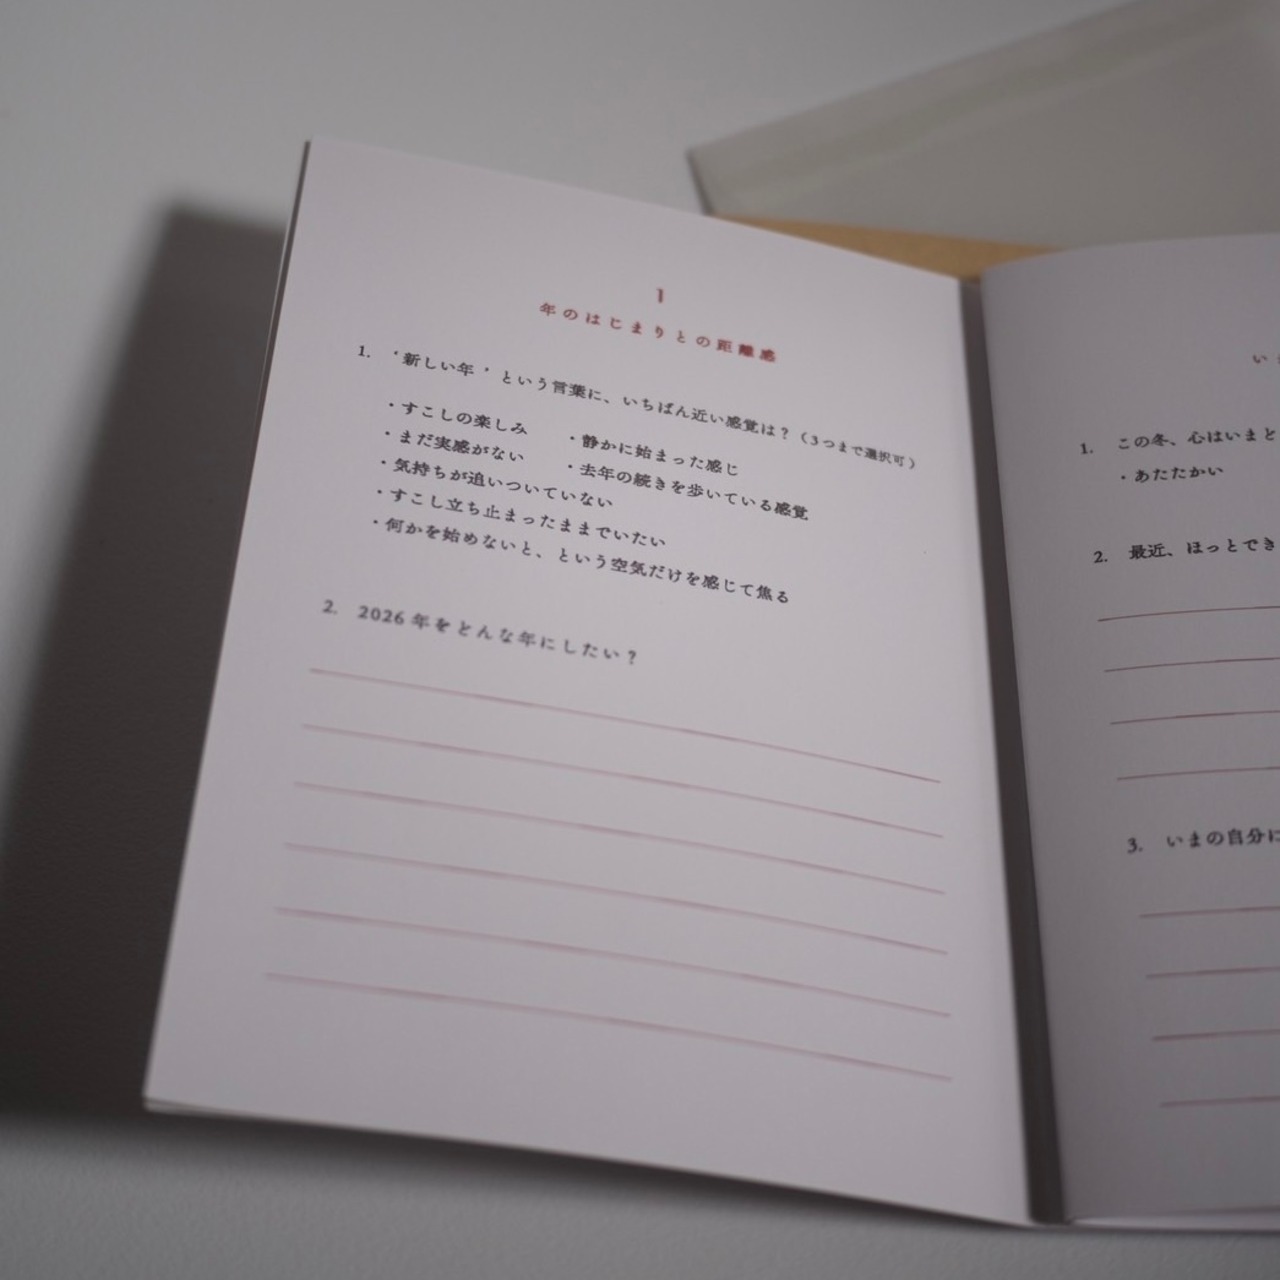 1
年のはじまりとの距離感
1. ‘新しい年’という言葉に、いちばん近い感覚は？（3つまで選択可）
・すこしの楽しみ ・静かに始まった感じ
・まだ実感がない ・去年の続きを歩いている感覚
・気持ちが追いついていない
・すこし立ち止まったままでいたい
・何かを始めないと、という空気だけを感じて焦る
2. 2026年をどんな年にしたい？
い
1. この冬、心はいまと
・あたたかい
2. 最近、ほっとでき
3. いまの自分に